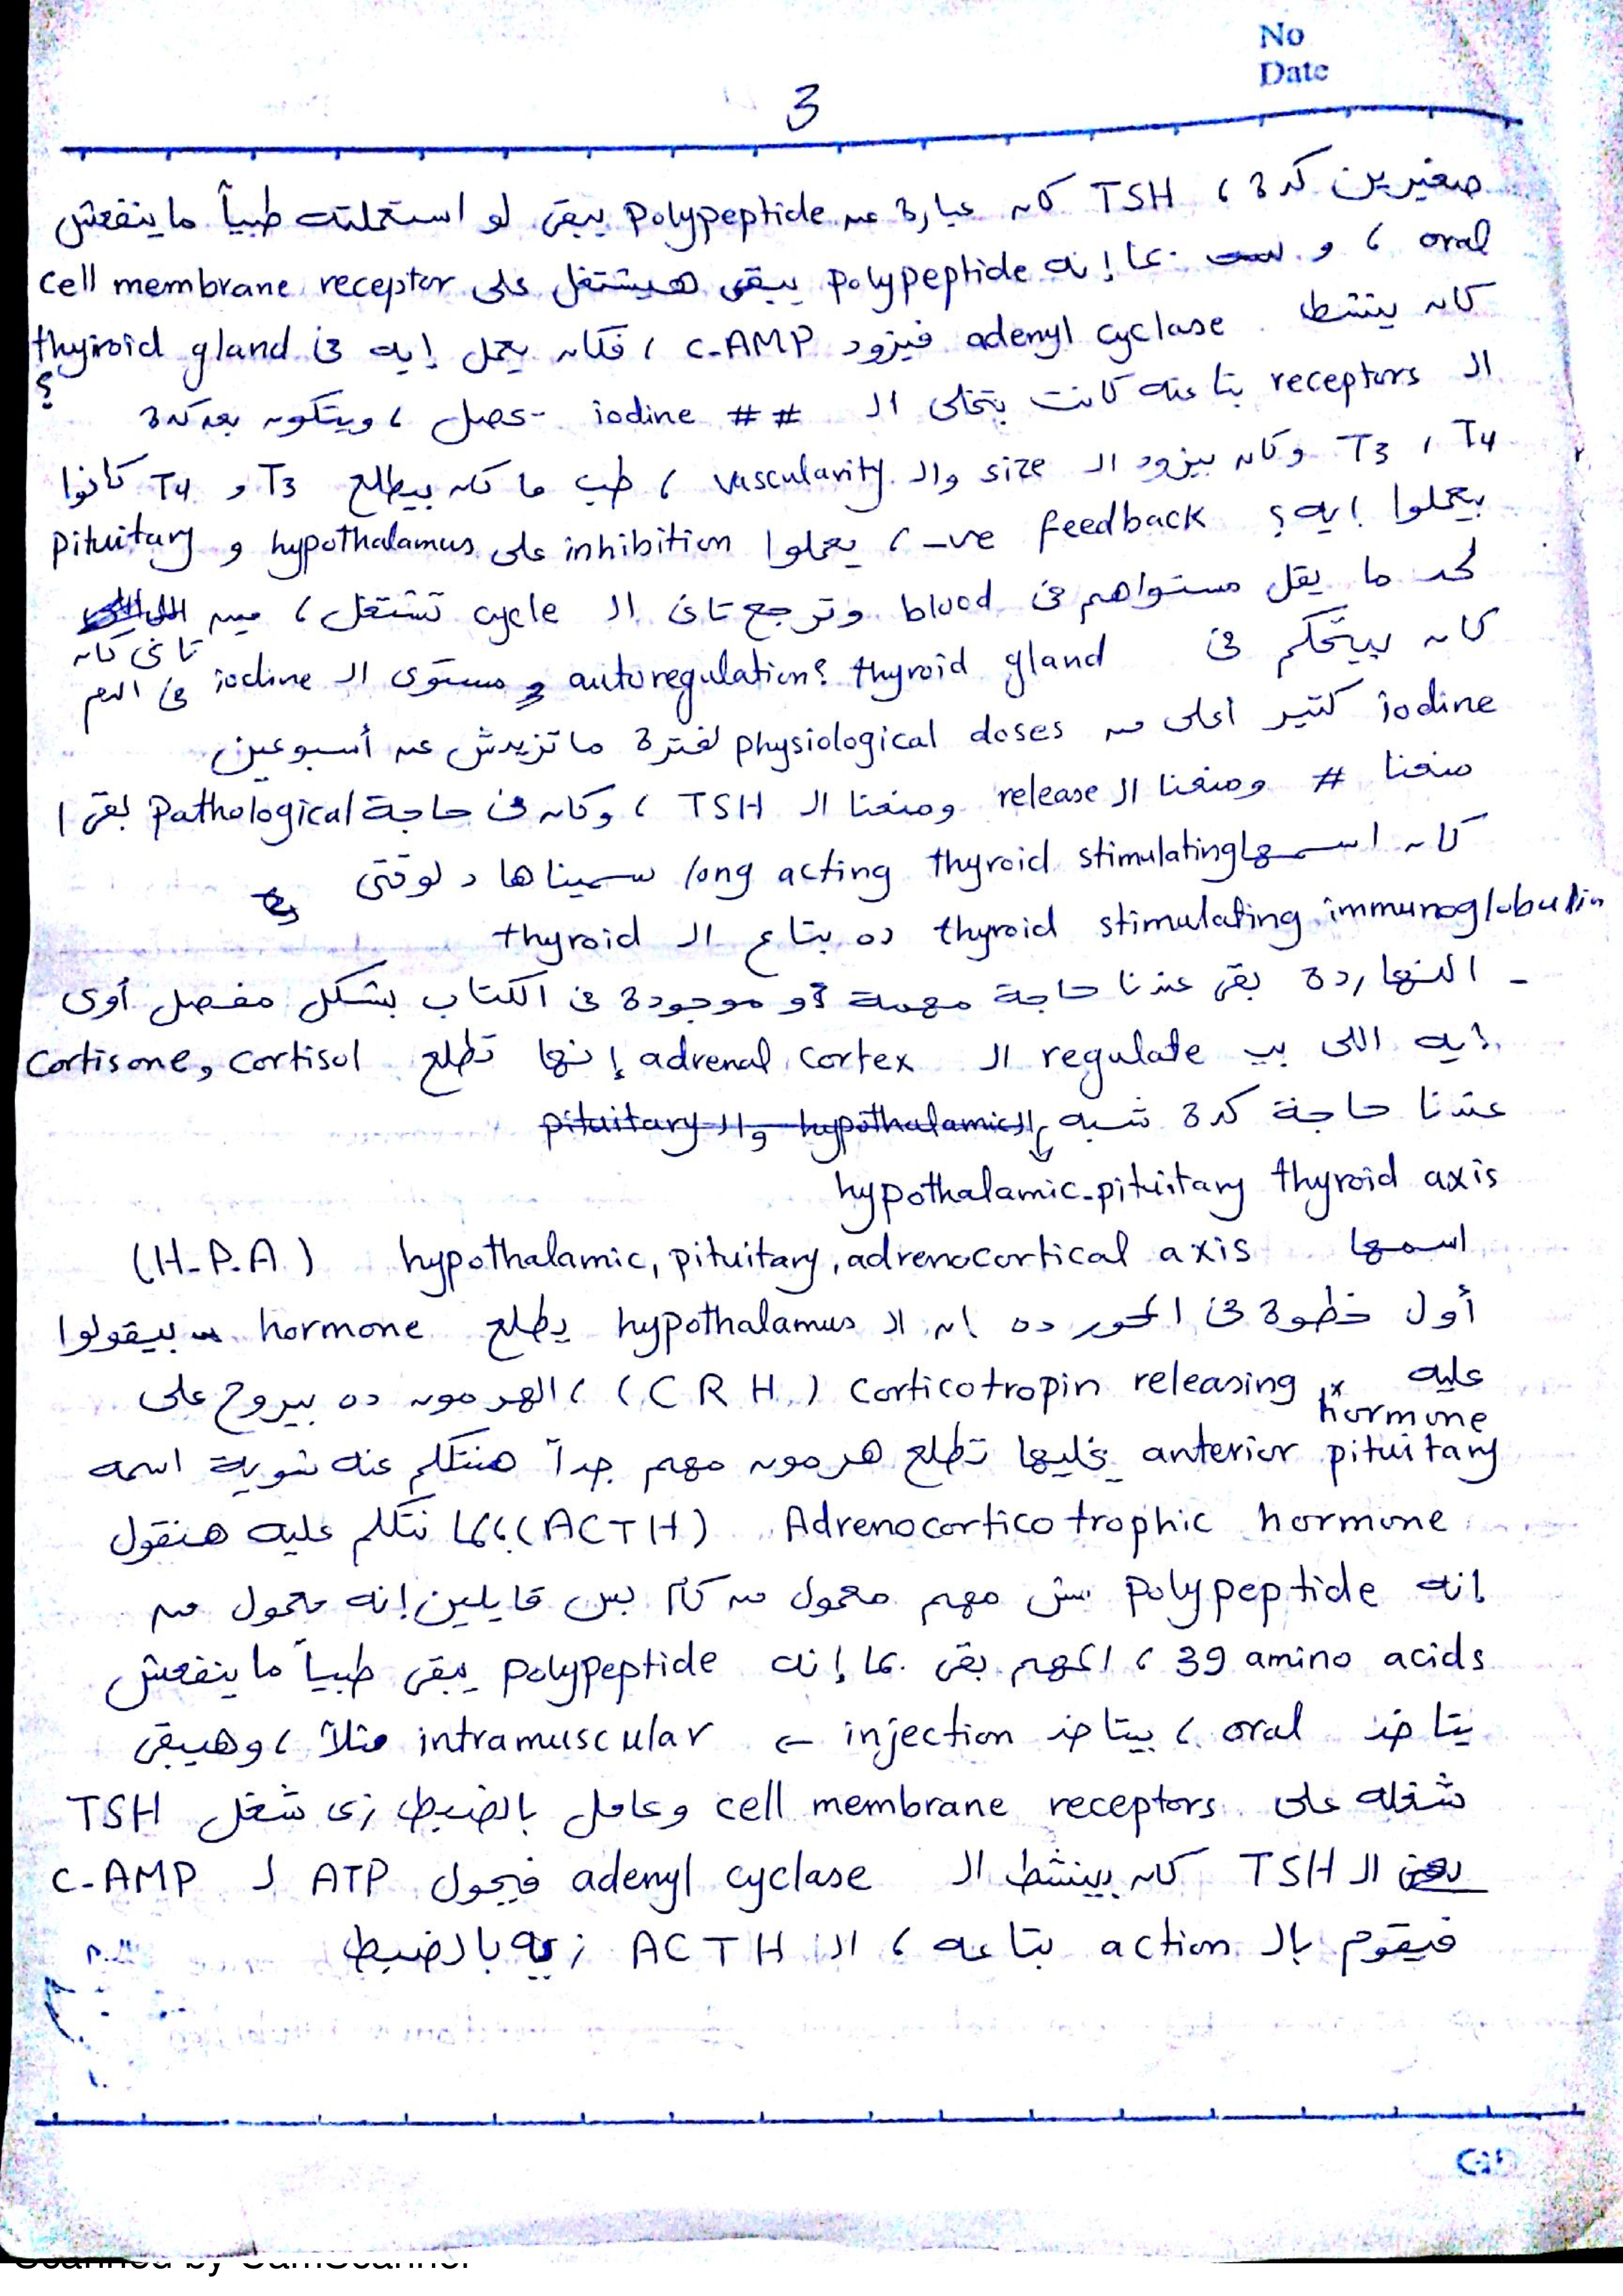 No
Date
3
صغيرين كده ، TSH كان عبارة عن polypeptide يبقى لو استعملته طبياً ماينفعش
oral ، و بما إنه polypeptide يبقى هيشتغل على cell membrane receptor
كان ينشط adenyl cyclase فيزود c-AMP ، فكان يعمل إيه فى thyroid gland ؟
الـ receptors بتاعته كانت بتخلى الـ iodine ## حصل ، ويتكون بعد كده
T3 , T4 وكان بيزود الـ size والـ vascularity ، طب ما كان بيطلع T3 و T4 كانوا
بيعملوا إيه ؟ -ve feedback ، يعملوا inhibition على hypothalamus و pituitary
لحد ما يقل مستواهم فى blood وترجع تانى الـ cycle تشتغل ، مين
تانى كان
كان بيتحكم فى thyroid gland ؟ autoregulation و مستوى الـ iodine فى الدم
iodine كتير أعلى من physiological doses لفترة ماتزيدش عن أسبوعين
منعنا # ومنعنا الـ release ومنعنا الـ TSH ، وكان فى حاجة pathological بقى ا
كان اسمها long acting thyroid stimulating سميناها دلوقتى
thyroid stimulating immunoglobulin ده بتاع الـ thyroid
- النهاردة بقى عندنا حاجة مهمة و موجودة فى الكتاب بشكل مفصل أوى
إيه اللى بيـ regulate الـ adrenal cortex إنها تطلع cortisone, cortisol
عندنا حاجة كده شبه الـ hypothalamic والـ pituitary
hypothalamic-pituitary thyroid axis
اسمها hypothalamic, pituitary, adrenocortical axis (H-P.A)
أول خطوة فى المحور ده إن الـ hypothalamus يطلع hormone بيقولوا
عليه corticotropin releasing hormone (CRH) ، الهرمون ده بيروح على
anterior pituitary يخليها تطلع هرمون مهم جداً هنتكلم عنه شوية اسمه
Adrenocorticotrophic hormone (ACTH) ، لما نتكلم عليه هنقول
إنه polypeptide مش مهم معمول من كام بس قايلين إنه معمول من
39 amino acids ، المهم بقى بما إنه polypeptide يبقى طبياً ماينفعش
يتاخد oral ، بيتاخد injection ← intramuscular مثلاً ، وهيبقى
شغله على cell membrane receptors وعامل بالضبط زى شغل TSH
الـ TSH كان بينشط الـ adenyl cyclase فيحول ATP لـ c-AMP
فيقوم بالـ action بتاعه ، الـ ACTH زيه بالضبط
Scanned by CamScanner